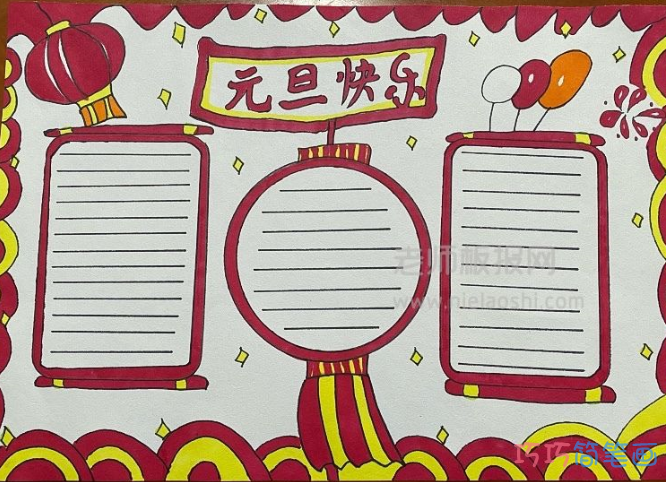 元旦快乐
老师板报网
www.nielaoshi.com
巧巧简笔画